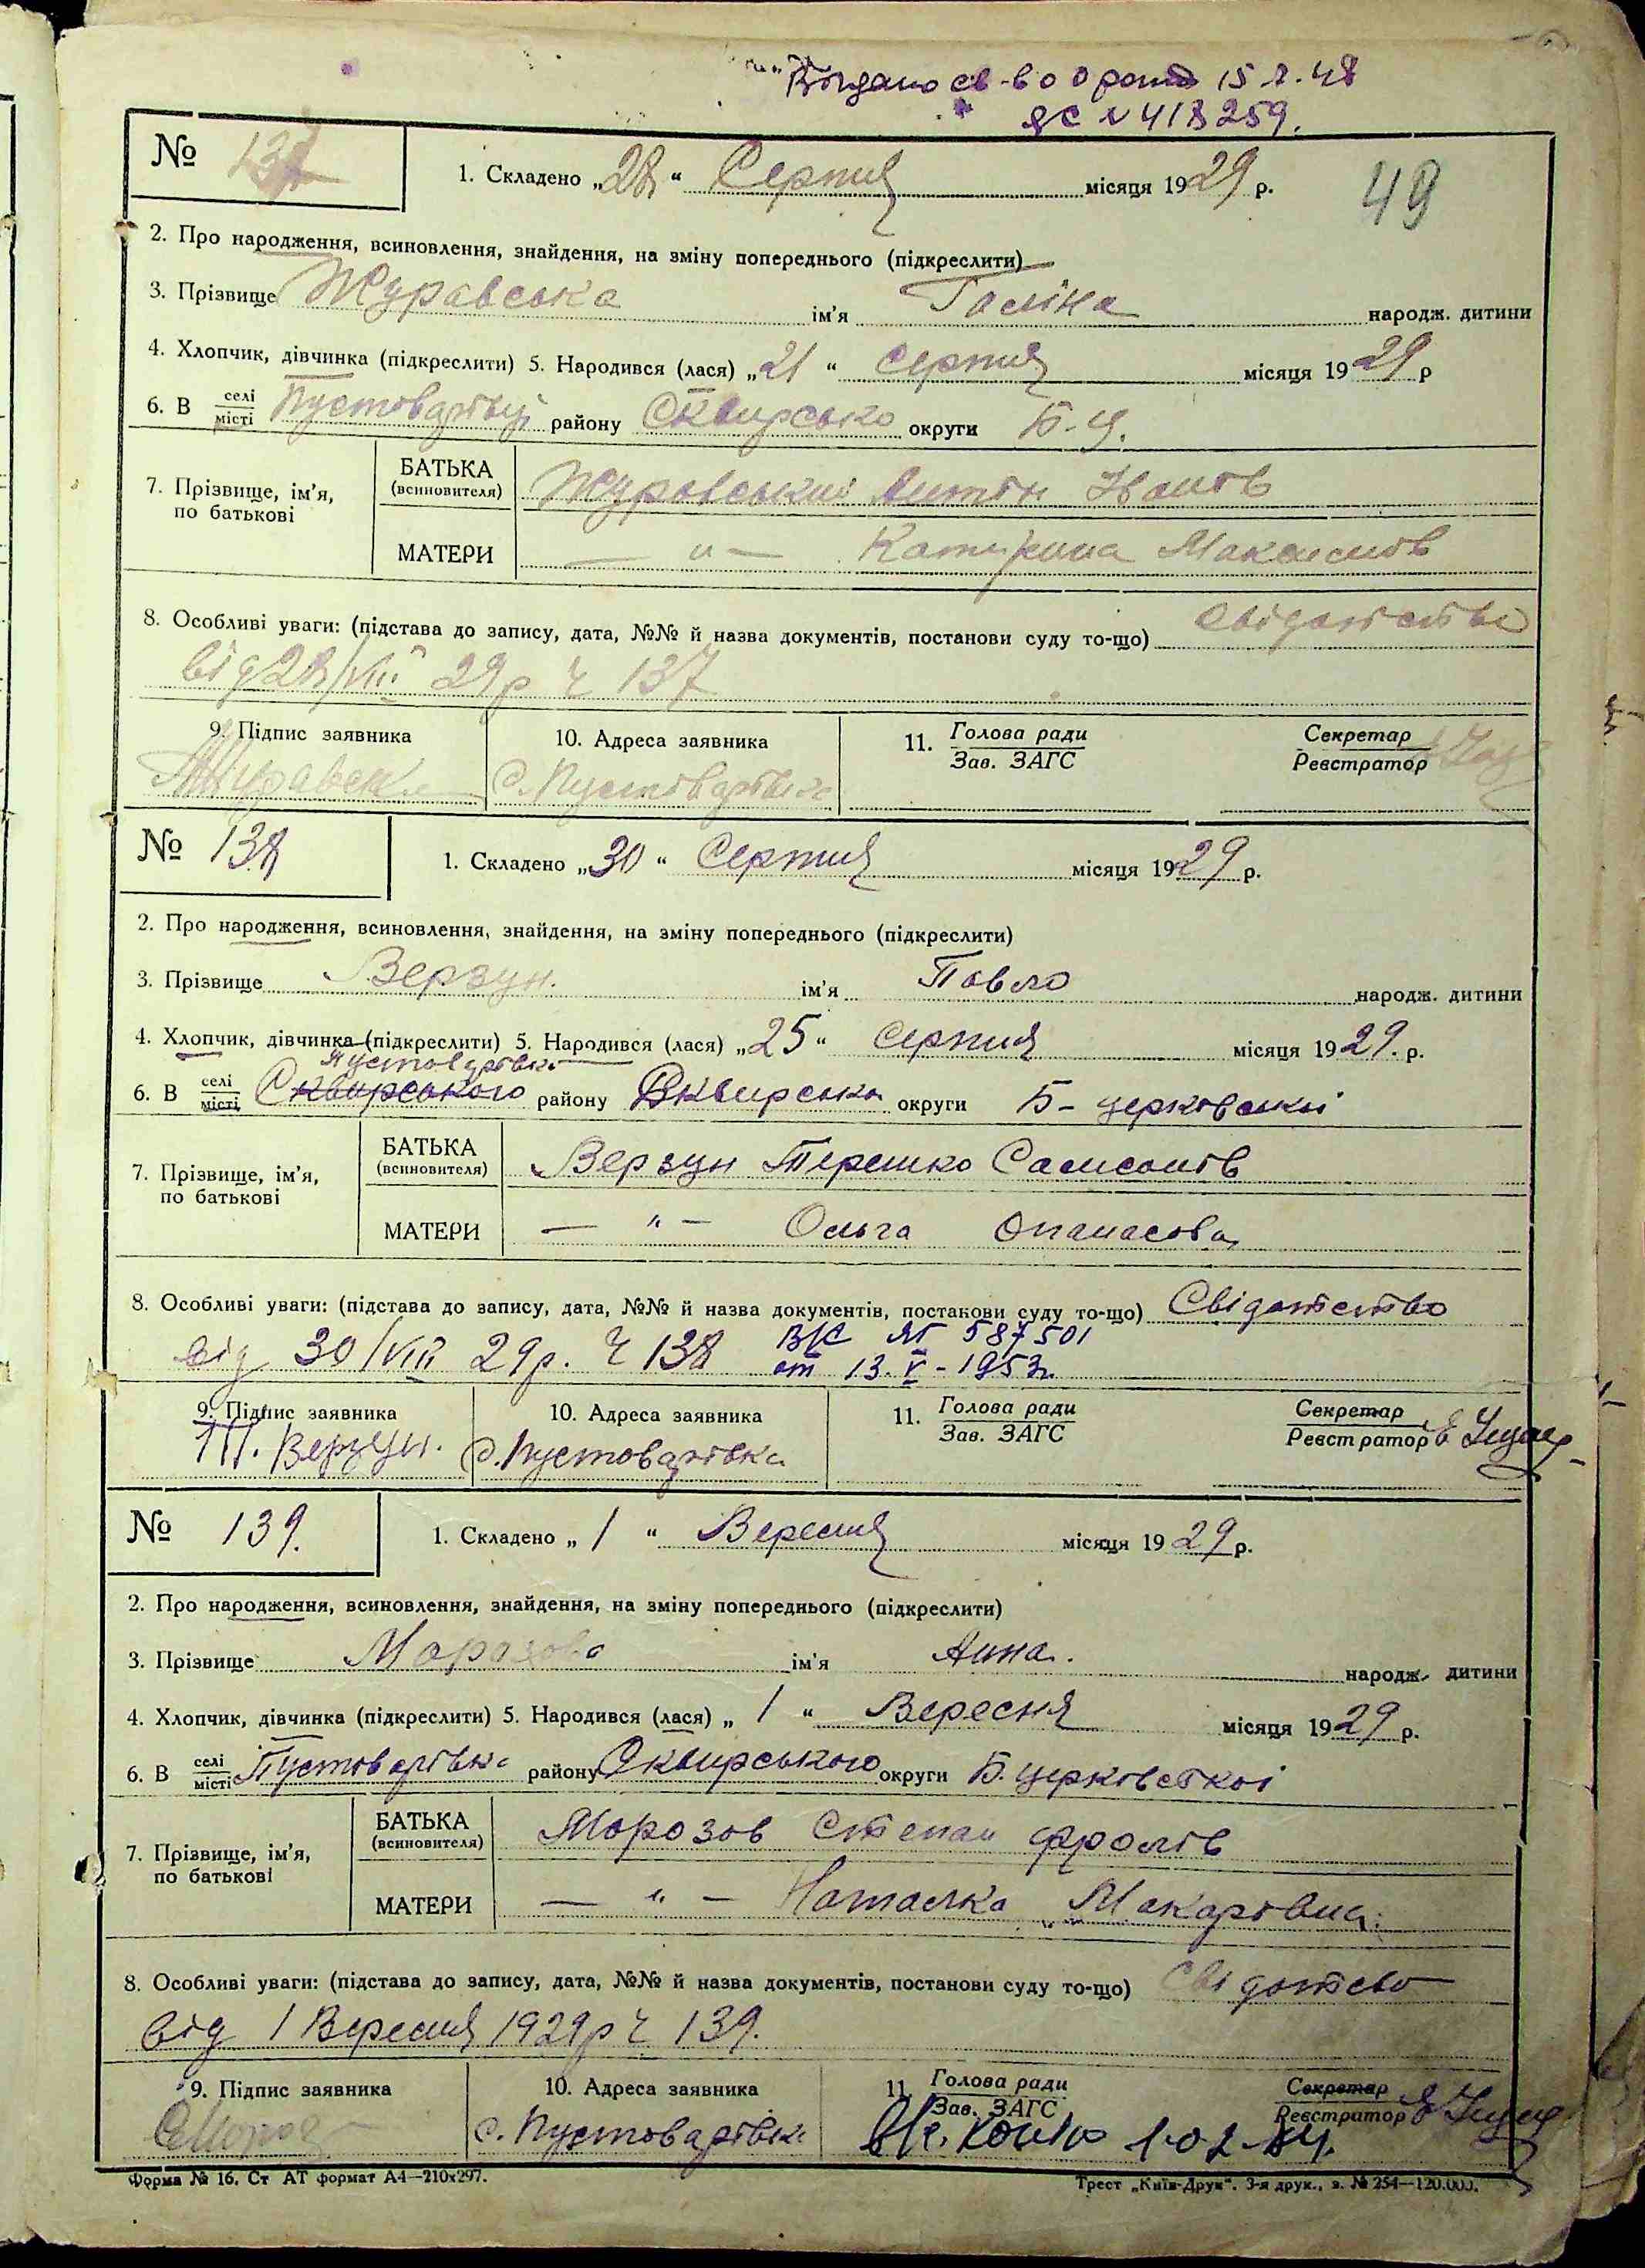 Видано св-во о рожд 15.2.48
ЯС N 418259.
№ 137
1. Складено „28“ Серпня місяця 1929 р.
49
2. Про народження, всиновлення, знайдення, на зміну попереднього (підкреслити)
3. Прізвище Журавська ім'я Галіна народж. дитини
4. Хлопчик, дівчинка (підкреслити) 5. Народився (лася) „21“ Серпня місяця 1929 р
6. В селі місті Пустоварівці району Сквирсько округи Б-Ц.
7. Прізвище, ім'я, по батькові
БАТЬКА (всиновителя) Журавський Антін Іванів
МАТЕРИ — „ — Катирина Максимів
8. Особливі уваги: (підстава до запису, дата, №№ й назва документів, постанови суду то-що) Свідотство
від 28/VIII 29 р Ч 137
9. Підпис заявника 10. Адреса заявника 11. Голова ради Зав. ЗАГС Секретар Реєстратор
Журавськ с. Пустоварівка
№ 138
1. Складено „30“ Серпня місяця 1929 р.
2. Про народження, всиновлення, знайдення, на зміну попереднього (підкреслити)
3. Прізвище Верзун. ім'я Павло народж. дитини
4. Хлопчик, дівчинка (підкреслити) 5. Народився (лася) „25“ Серпня місяця 1929. р.
Пустоварівка
6. В селі місті Сквирського району Сквирсько округи Б-церковської
7. Прізвище, ім'я, по батькові
БАТЬКА (всиновителя) Верзун Терешко Самсонів
МАТЕРИ — „ — Ольга Опанасова
8. Особливі уваги: (підстава до запису, дата, №№ й назва документів, постанови суду то-що) Свідотство
від 30/VIII 29 р. Ч 138 ЯГ 587501
от 13.V-1953г.
9. Підпис заявника 10. Адреса заявника 11. Голова ради Зав. ЗАГС Секретар Реєстратор
Т. Верзун. с. Пустоварівка
№ 139.
1. Складено „1“ Вересня місяця 1929 р.
2. Про народження, всиновлення, знайдення, на зміну попереднього (підкреслити)
3. Прізвище Морозова ім'я Анна. народж. дитини
4. Хлопчик, дівчинка (підкреслити) 5. Народився (лася) „1“ Вересня місяця 1929 р.
6. В селі місті Пустоварівка району Сквирського округи Б. церковської
7. Прізвище, ім'я, по батькові
БАТЬКА (всиновителя) Морозов Степан Фролів
МАТЕРИ — „ — Наталка Макарівна
8. Особливі уваги: (підстава до запису, дата, №№ й назва документів, постанови суду то-що) Свідотсво
від 1 Вересня 1929 р Ч 139.
9. Підпис заявника 10. Адреса заявника 11. Голова ради Зав. ЗАГС Секретар Реєстратор
СМороз с. Пустоварівка 1-02-84.
Форма № 16. Ст АТ формат А4—210х297. Трест „Київ-Друк“. 3-я друк., з. № 254—120.000.